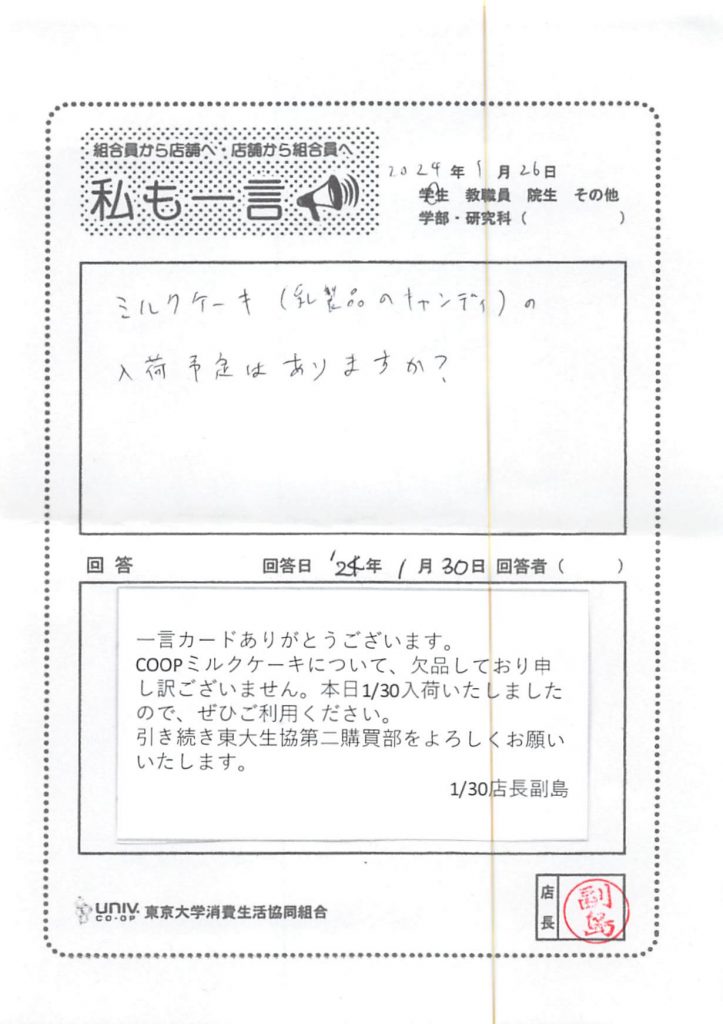 組合員から店舗へ・店舗から組合員へ
私も一言
2024年1月26日
学生 教職員 院生 その他
学部・研究科( )
ミルクケーキ(乳製品のキャンディ)の
入荷予定はありますか?
回答 回答日 '24年 1月30日 回答者( )
一言カードありがとうございます。
COOPミルクケーキについて、欠品しており申
し訳ございません。本日1/30入荷いたしました
ので、ぜひご利用ください。
引き続き東大生協第二購買部をよろしくお願い
いたします。
1/30店長副島
UNIV. CO-OP 東京大学消費生活協同組合
店長 副島